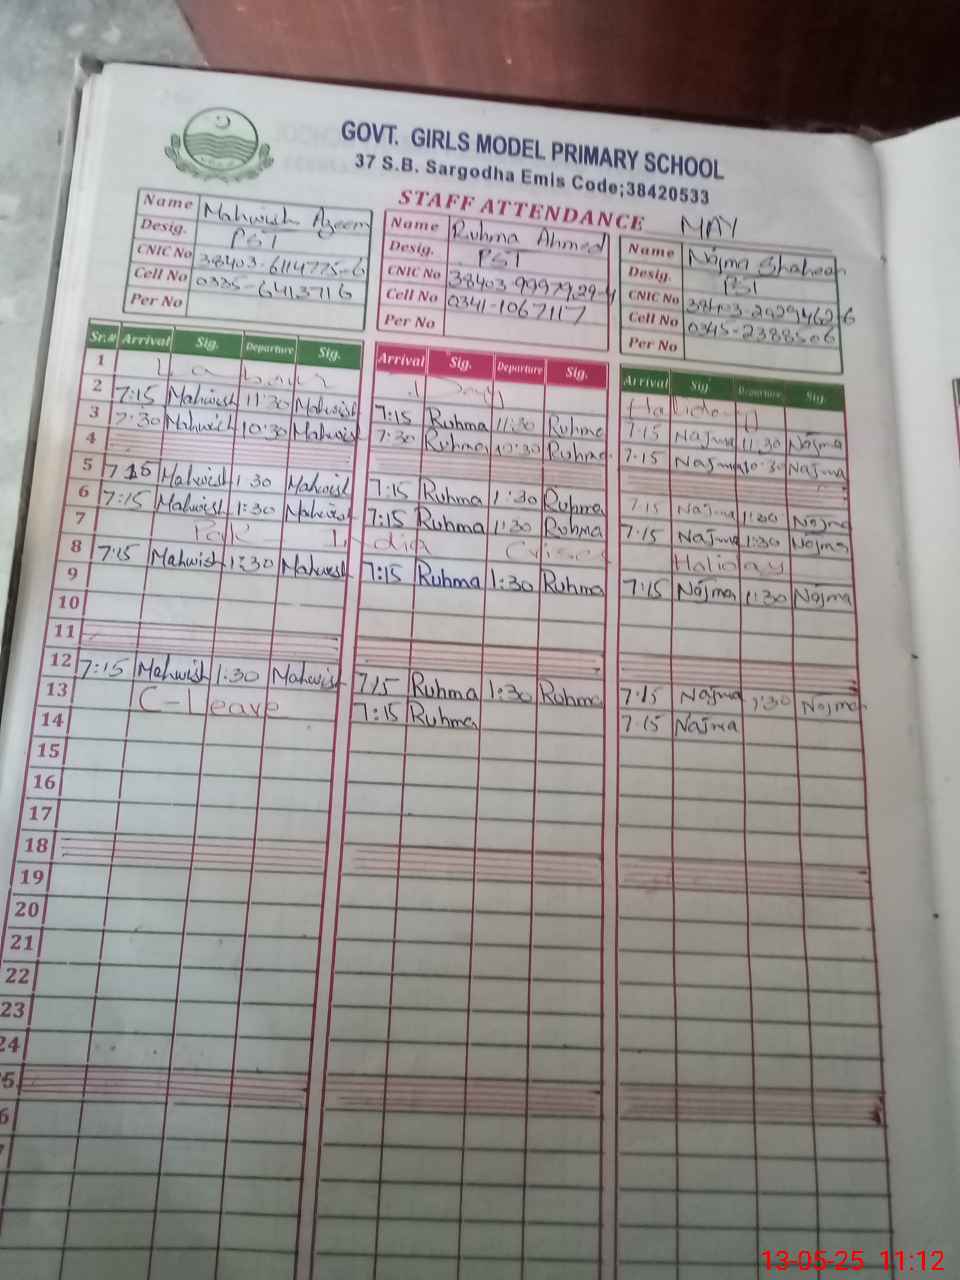 GOVT. GIRLS MODEL PRIMARY SCHOOL
37 S.B. Sargodha Emis Code;38420533
STAFF ATTENDANCE MAY
Name Mahwish Azeem
Desig. PST
CNIC No 38403-6114775-6
Cell No 0335-6413716
Per No
Name Ruhma Ahmed
Desig. PST
CNIC No 38403-9997929-4
Cell No 0341-1067117
Per No
Name Najma Shaheen
Desig. PST
CNIC No 38403-2929462-6
Cell No 0345-2388506
Per No
Sr.# Arrival Sig. Departure Sig. Arrival Sig. Departure Sig. Arrival Sig Departure Sig.
1 Labour Day Holiday
2 7:15 Mahwish 11:30 Mahwish 7:15 Ruhma 11:30 Ruhma 7:15 Najma 11:30 Najma
3 7:30 Mahwish 10:30 Mahwish 7:30 Ruhma 10:30 Ruhma 7:15 Najma 10:30 Najma
4
5 7:15 Mahwish 1:30 Mahwish 7:15 Ruhma 1:30 Ruhma 7:15 Najma 1:30 Najma
6 7:15 Mahwish 1:30 Mahwish 7:15 Ruhma 1:30 Ruhma 7:15 Najma 1:30 Najma
7 Pak - India Crises Holiday
8 7:15 Mahwish 1:30 Mahwish 7:15 Ruhma 1:30 Ruhma 7:15 Najma 1:30 Najma
9
10
11
12 7:15 Mahwish 1:30 Mahwish 7:15 Ruhma 1:30 Ruhma 7:15 Najma 1:30 Najma
13 C-Leave 7:15 Ruhma 7:15 Najma
14
15
16
17
18
19
20
21
22
23
24
5
6
7
13-05-25 11:12